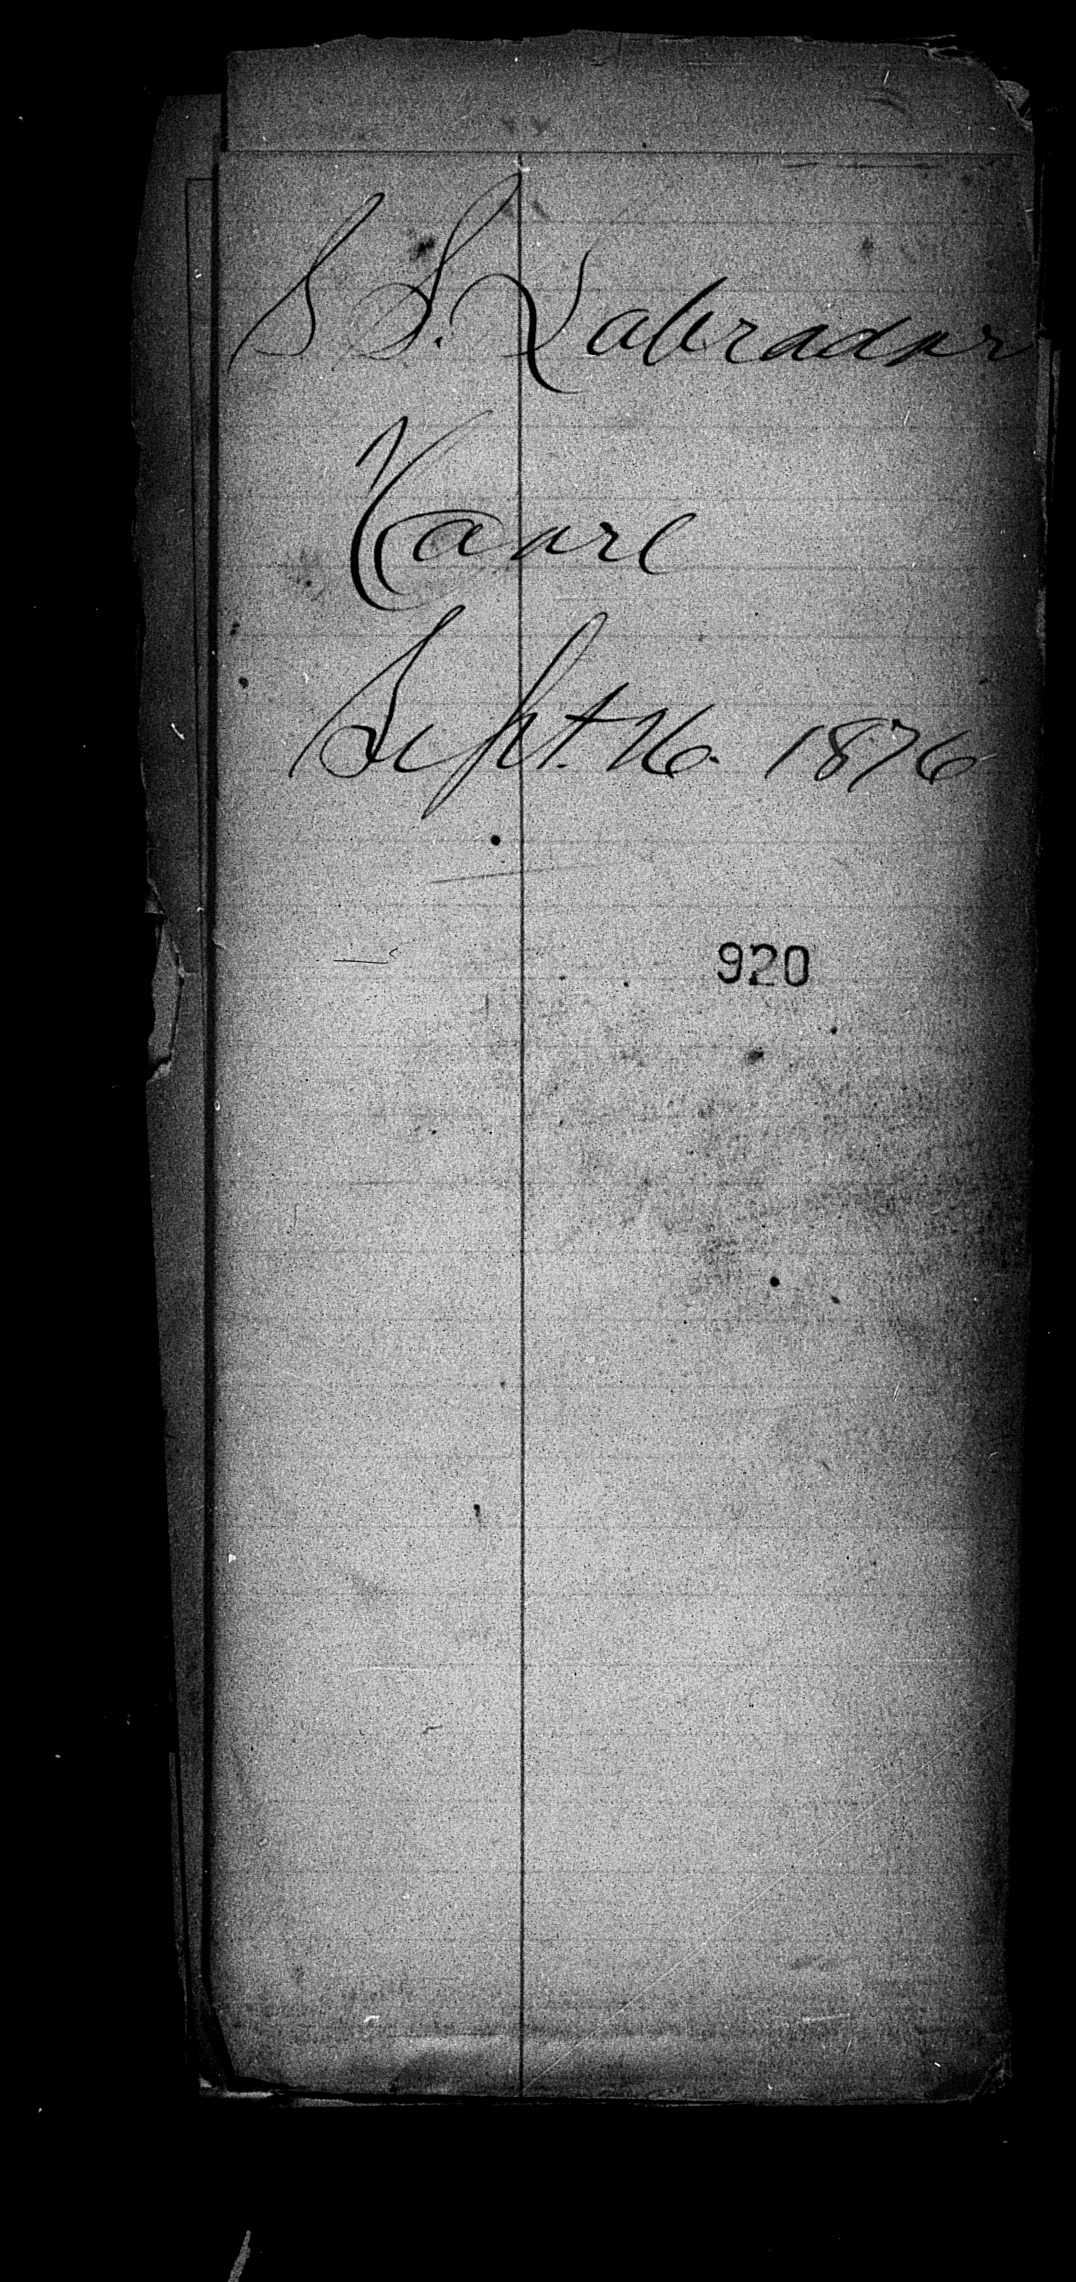 S S. Labrador
Havre
Sept. 16. 1876
920